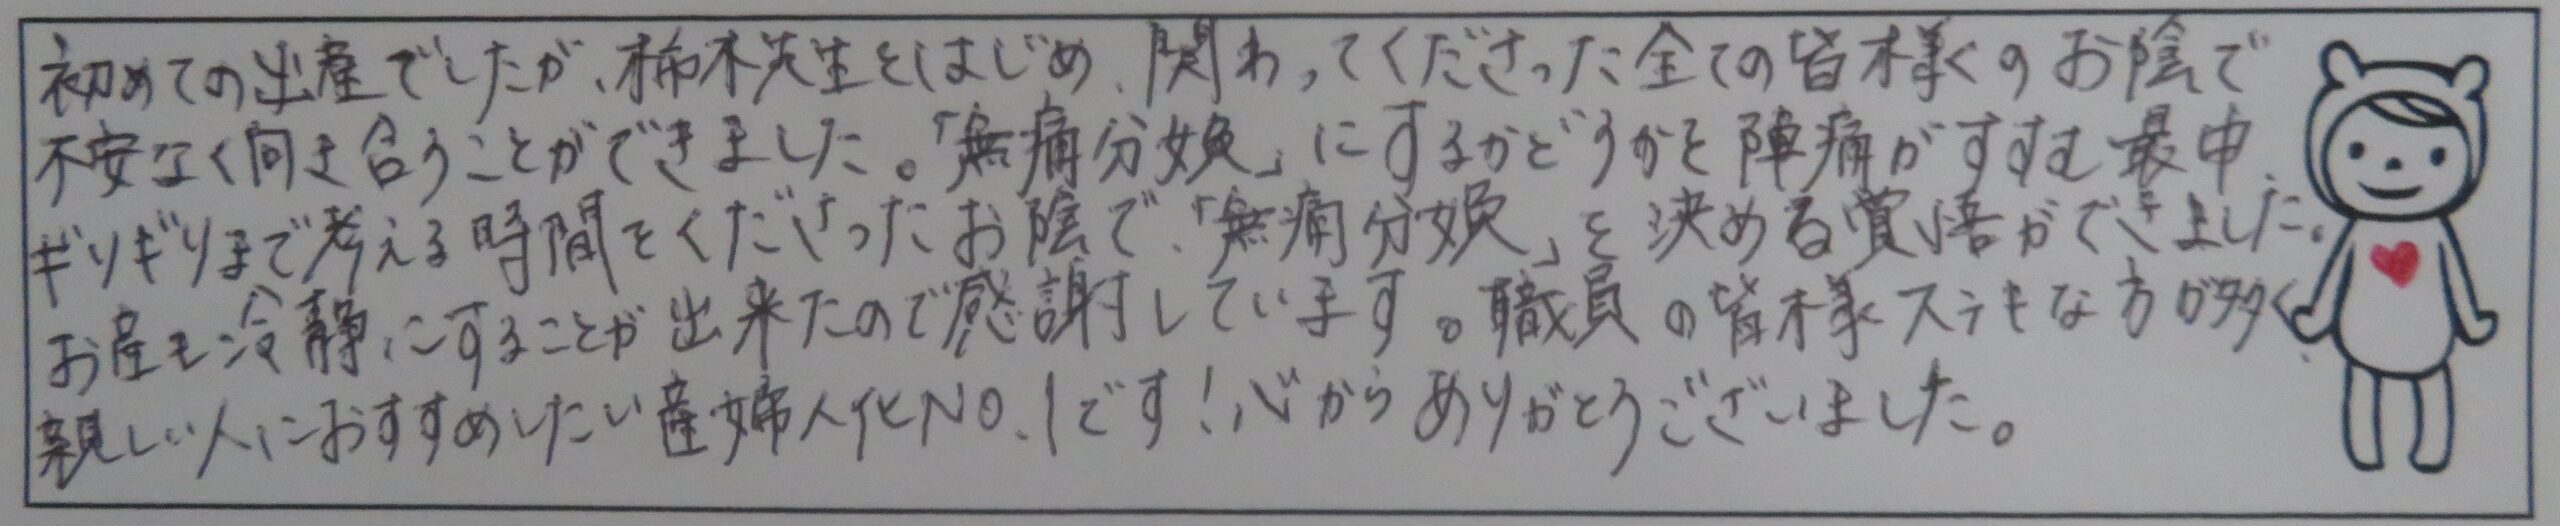 初めての出産でしたが、柿木先生をはじめ、関わってくださった全ての皆様のお陰で
不安なく向き合うことができました。「無痛分娩」にするかどうかを陣痛がすすむ最中
ギリギリまで考える時間をくださったお陰で、「無痛分娩」を決める覚悟ができました。
お産も冷静にすることが出来たので感謝しています。職員の皆様ステキな方が多く、
親しい人におすすめしたい産婦人化NO.1です！心からありがとうございました。